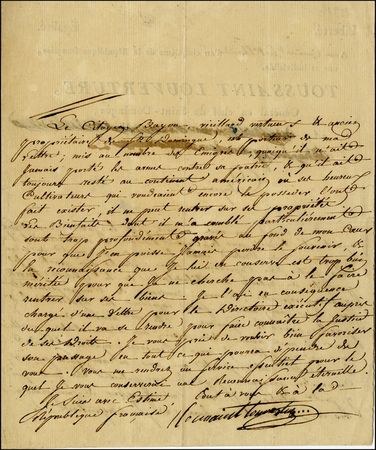 Le Citoyen Bayon, vieillard vertueux & ancien
propriétaire de St Domingue, est porteur de ma
lettre; mis au nombre des Emigrés, quoiqu'il n'ait
jamais porté les armes contre sa patrie, & qu'il ait
toujours resté au continent américain, où ses heureux
Cultivateurs qui voudraient encore le posséder l'ont
fait exister, il ne peut rentrer sur ses propriétés
les Bienfaits dont il m'a comblé particulièrement
sont trop profondément gravés au fond de mon cœur
pour que j'en puisse jamais perdre le souvenir, &
la reconnaissance que je lui en conserve est trop bien
méritée pour que je ne cherche pas à le faire
rentrer sur ses biens. Je l'ai en conséquence
chargé d'une lettre pour le Directoire exécutif auprès
duquel il va se rendre pour faire connaître la justice
de ses Droits. Je vous prie de vouloir bien favoriser
son passage en tout ce que pourra dépendre de
vous. Vous me rendrez un service essentiel pour le
quel je vous conserverai une Reconnaissance éternelle.
Je suis avec Estime tout à vous & à la
République française
Toussaint Louverture
TOUSSAINT LOUVERTURE